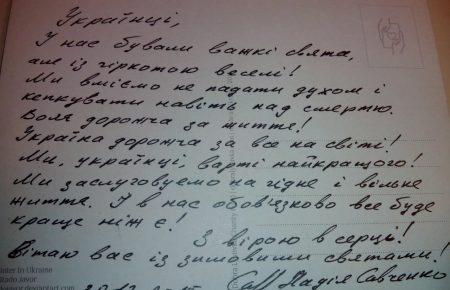 Українці,
У нас бували важкі свята,
але із гіркотою веселі!
Ми вміємо не падати духом і
кепкувати навіть над смертю.
Воля дорожча за життя!
Україна дорожча за все на світі!
Ми, українці, варті найкращого!
Ми заслуговуємо на гідне і вільне
життя. І в нас обов'язково все буде
краще ніж є!
З вірою в серці!
Вітаю вас із зимовими святами!
Надія Савченко
inter in Ukraine
Rado Javor